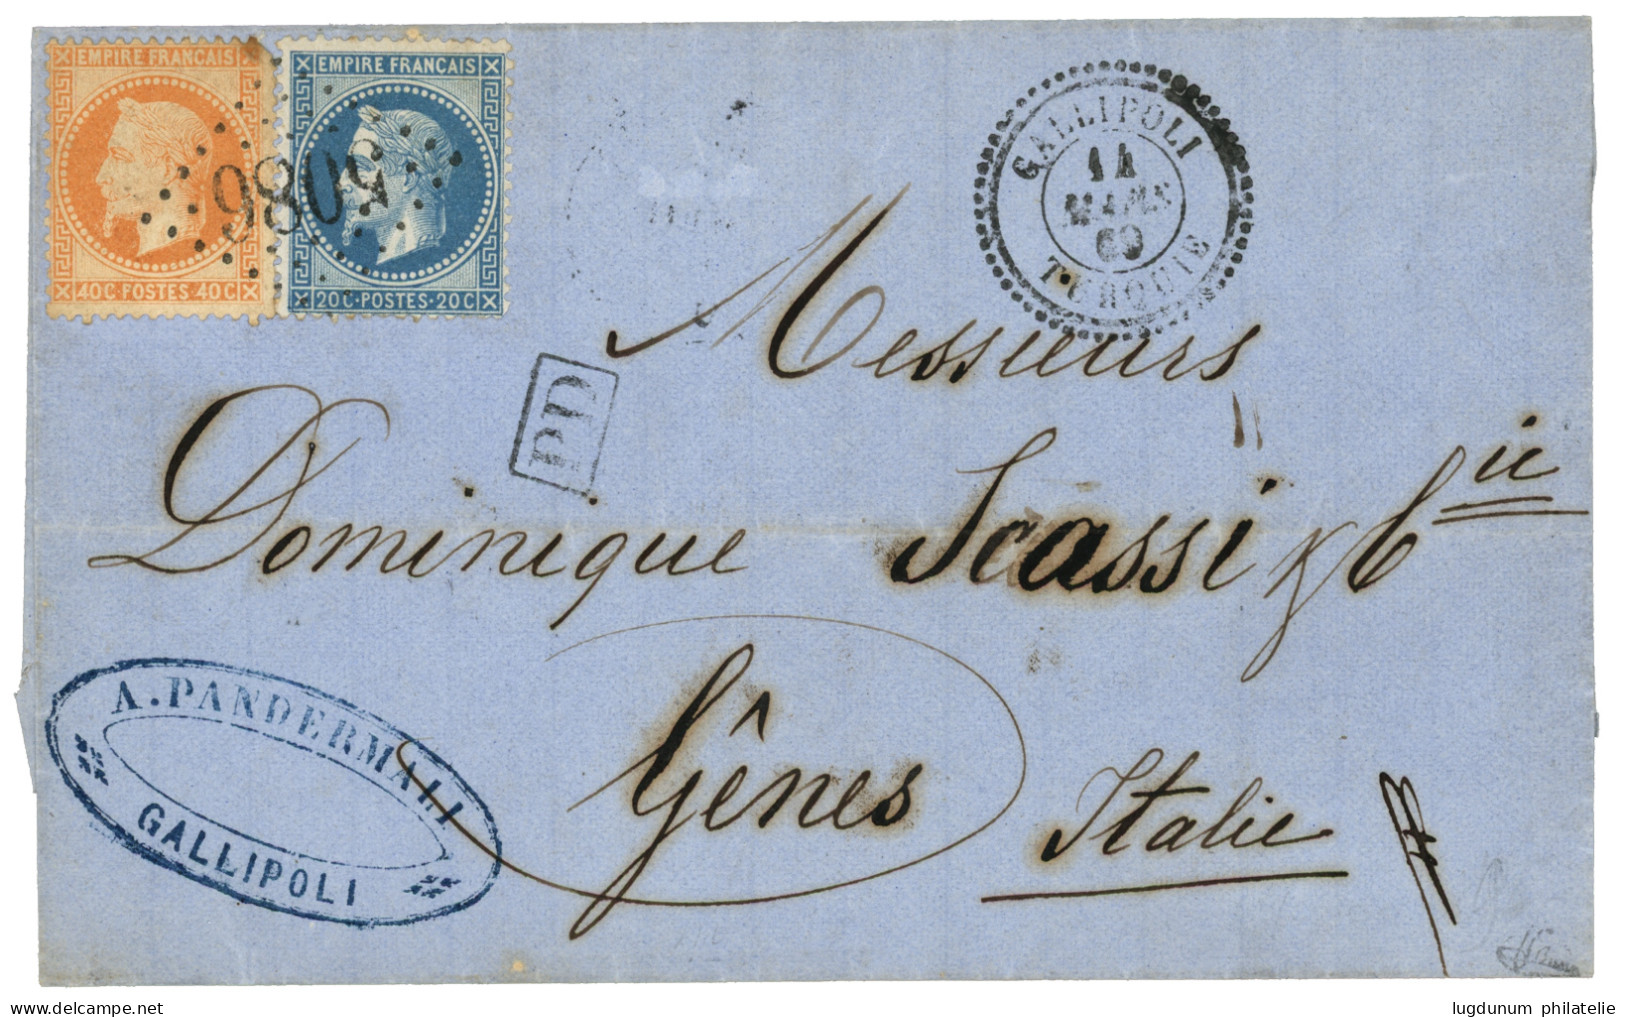 EMPIRE FRANÇAIS
40C·POSTES·40C
EMPIRE FRANÇAIS
20C·POSTES·20C
5086
GALLIPOLI
14
MARS
69
TURQUIE
PD
Messieurs
Dominique Scassi & Cie
Gênes
Italie
A. PANDERMALI
GALLIPOLI
lugdunum philatelie